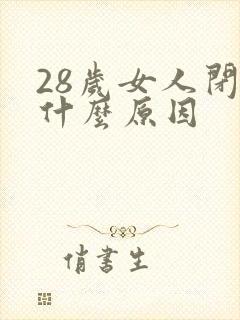 28歲女人閉
什麼原因
俏書生